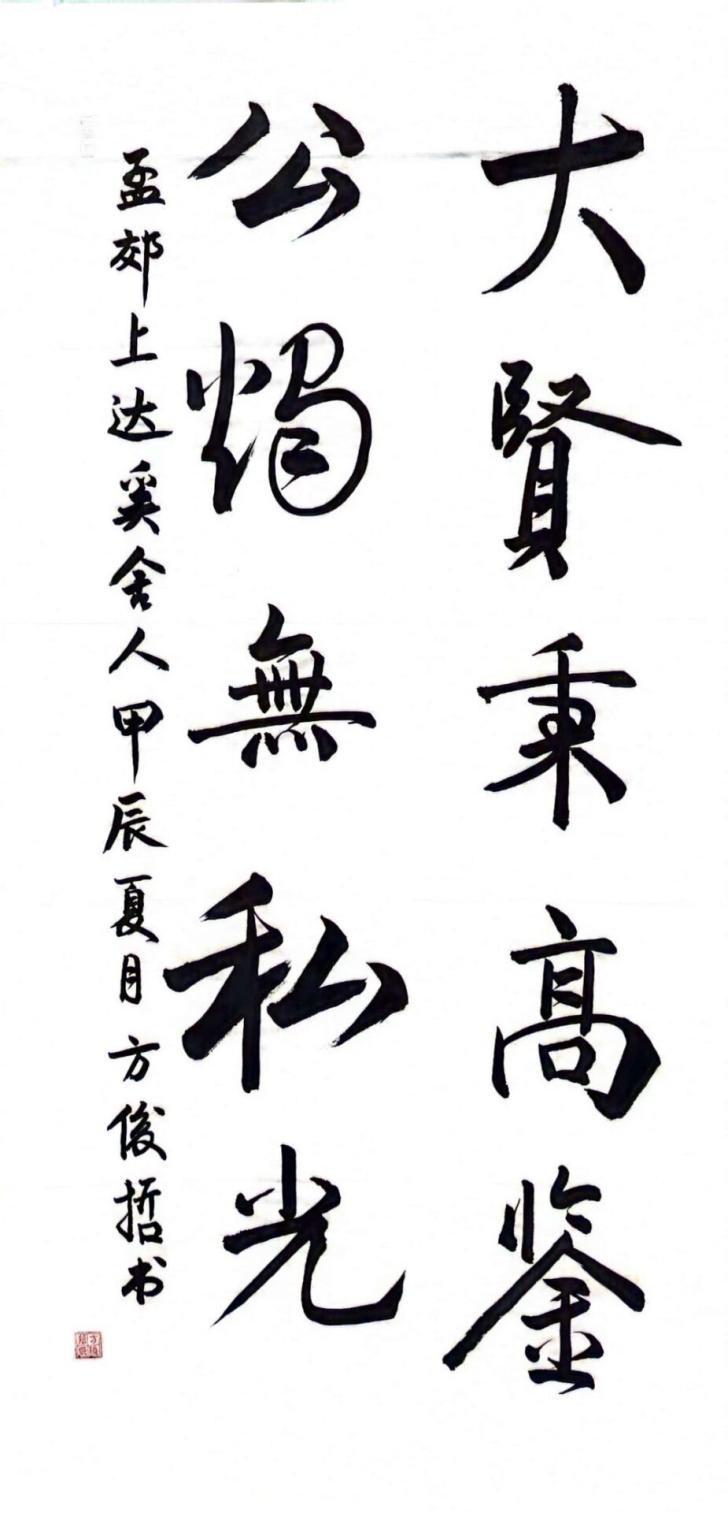 大賢秉高鉴
公燭無私光
孟郊上达奚舍人甲辰夏月方俊哲书